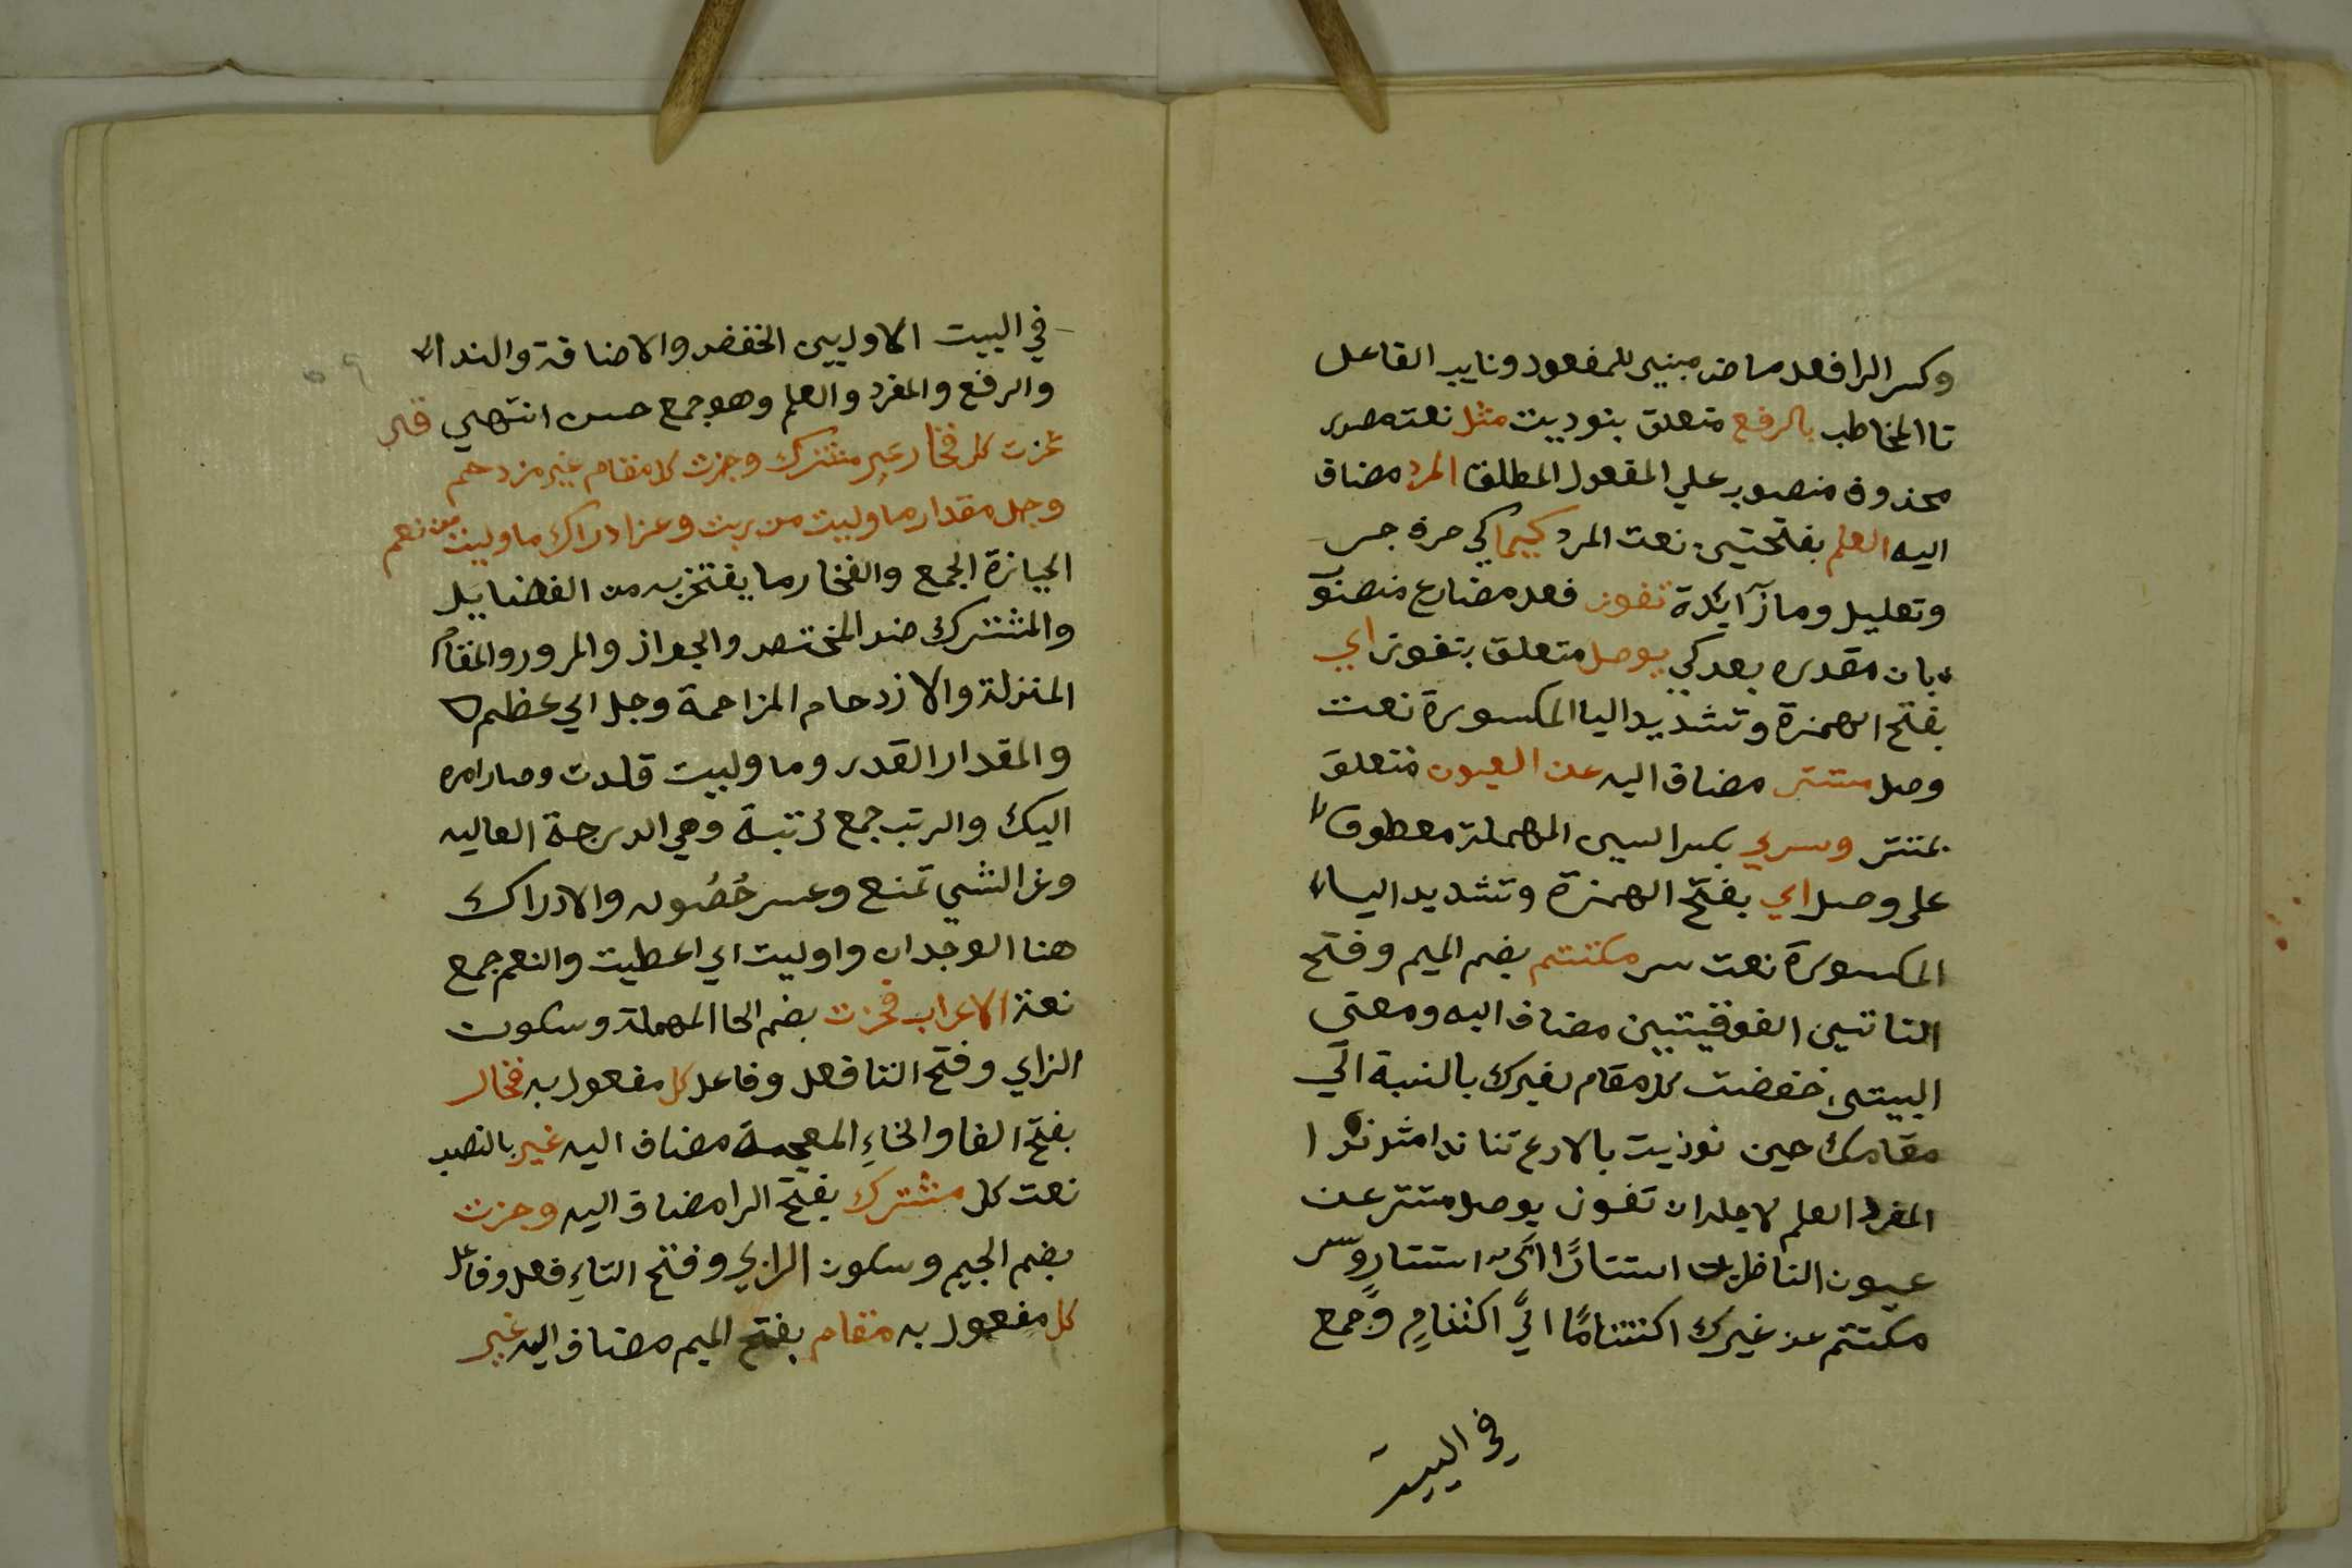 وكسر الرا فعل ماض مبني للمفعول ونايب الفاعل
تا المخاطب بالرفع متعلق بنوديت مثل نعت مصدر
محذوف منصوب علي المفعول المطلق المفرد مضاف
اليه العلم بفتحتين نعت المفرد كيما كي حرف جر
وتعليل وما زآئدة تفوز فعل مضارع منصوب
بان مقدره بعد كي بوصل متعلق بتفوز اي
بفتح الهمزة وتشديد اليا المكسورة نعت
وصل مستتر مضاف اليه عن العيون متعلق
بمستتر وسر بكسر السين المهملة معطوف
على وصل اي بفتح الهمزة وتشديد الياء
المكسورة نعت سر مكتتم بضم الميم وفتح
التا تين الفوقيتين مضاف اليه ومعني
البيتين خفضت كل مقام لغيرك بالنسبة الي
مقامك حين نوديت بالارتفاع ندا مثل ندا
المفرد العلم لاجل ان تفوز بوصل مستتر عن
عيون الناظرين استتارًا اي استتار وسر
مكتتم عن غيرك اكتتامًا ايّ اكتتامٍ وجمع
في البيت
في البيت الاول بين الخفض والاضافة والنداء
والرفع والمفرد والعلم وهو جمع حسن انتهي قال
فحزت كل فخار غير مشترك وجزت كل مقام غير مزدحم
وجل مقدار ما وليت من رتب وعز ادراك ما اوليت من نعم
الحيازة الجمع والفخار ما يفتخر به من الفضايل
والمشترك ضد المختص والجواز والمرور والمقام
المنزلة والازدحام المزاحمة وجل اي عظم
والمقدار القدر وما وليت قلدت وصار امره
اليك والرتب جمع رتبة وهي الدرجة العاليه
وعز الشي تمنع وعسر حُصُوله والادراك
هنا الوجدان واوليت اي اعطيت والنعم جمع
نعمة الاعراب فحزت بضم الحا المهملة وسكون
الزاي وفتح التا فعل وفاعل كل مفعول به فخار
بفتح الفا والخاءِ المعجمة مضاف اليه غير بالنصب
نعت كل مشترك بفتح الرا مضاف اليه وجزت
بضم الجيم وسكون الزاي وفتح التاءِ فعل وفاعل
كل مفعول به مقام بفتح الميم مضاف اليه غير